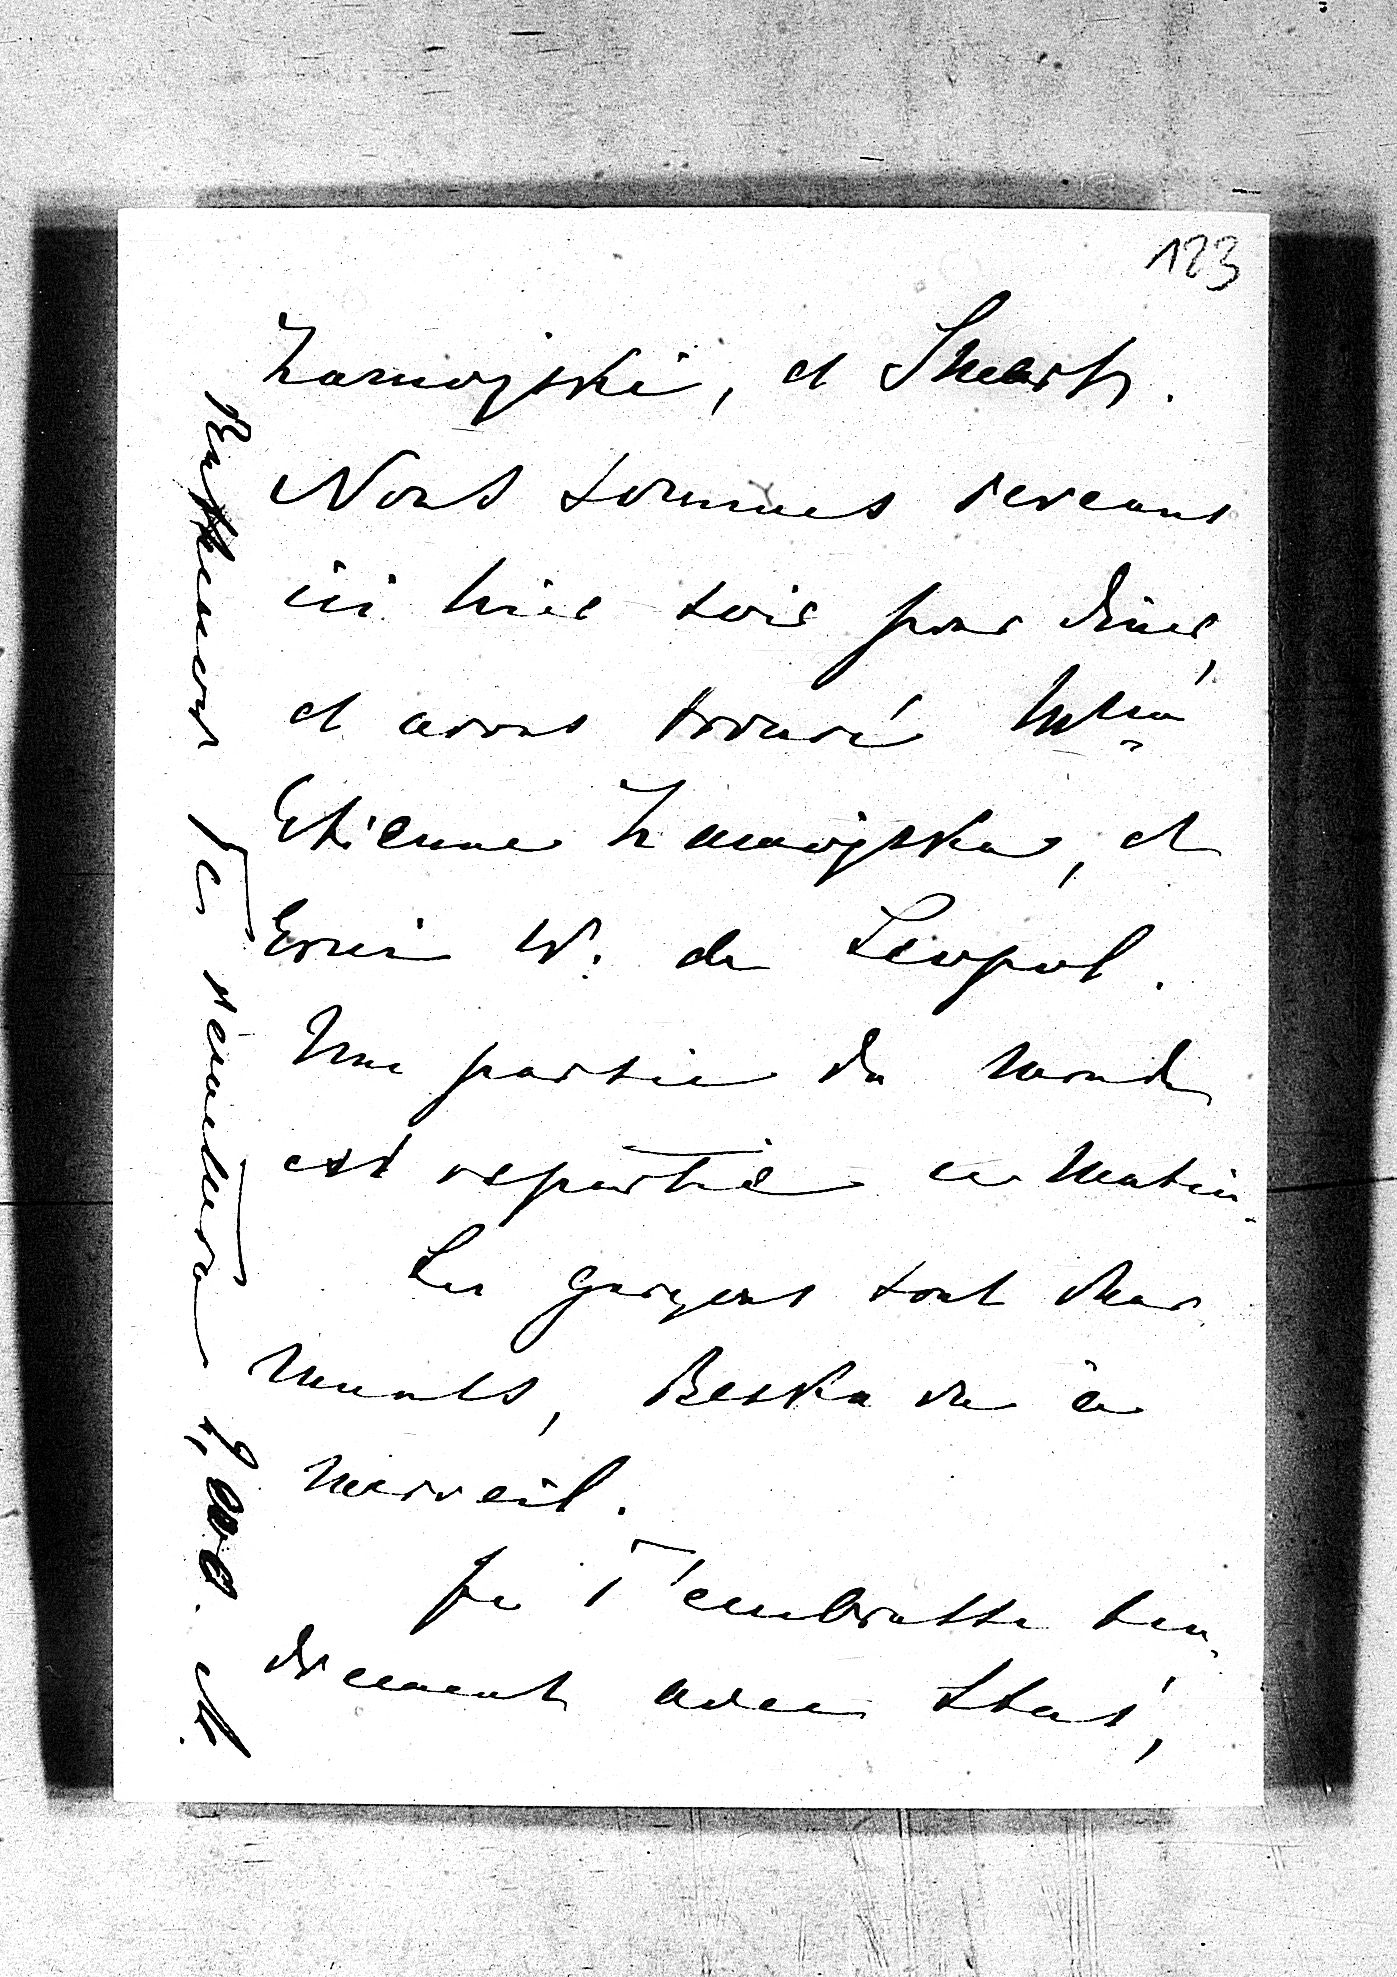 123
Zamojski, et Skarb.
Nous sommes revenus
ici hier soir pour diner,
et avons trouvé Mme
Etienne Zamojska, et
Erwin W. de Léopol.
Une partie du monde
est repartie ce matin.
Les garçons sont char
mants, Beska va à
merveil.
Je T'embrasse ten
drement avec Staś,